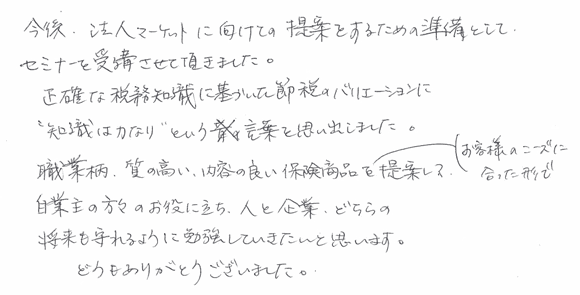 今後、法人マーケットに向けての提案をするための準備として、
セミナーを受講させて頂きました。
正確な税務知識に基づいた節税のバリエーションに
"知識は力なり"という言葉を思い出しました。
職業柄、質の高い、内容の良い保険商品を提案して、
お客様のニーズに
合った形で
自営主の方々のお役に立ち、人と企業、どちらの
将来も守れるように勉強していきたいと思います。
どうもありがとうございました。